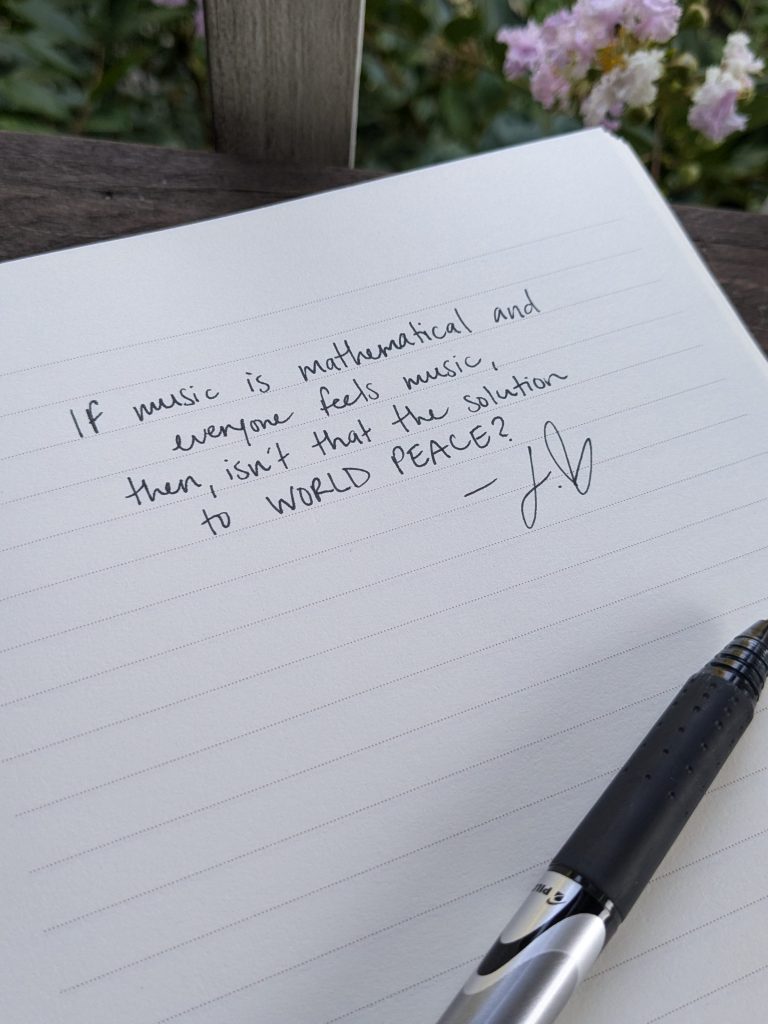 If music is mathematical and
everyone feels music,
then, isn't that the solution
to WORLD PEACE?